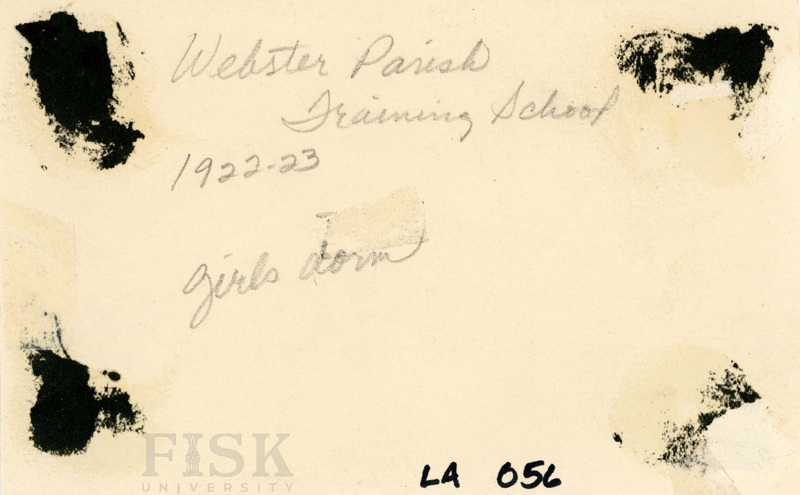 Webster Parish
Training School
1922-23
girls dorm
FISK
UNIVERSITY
LA 056